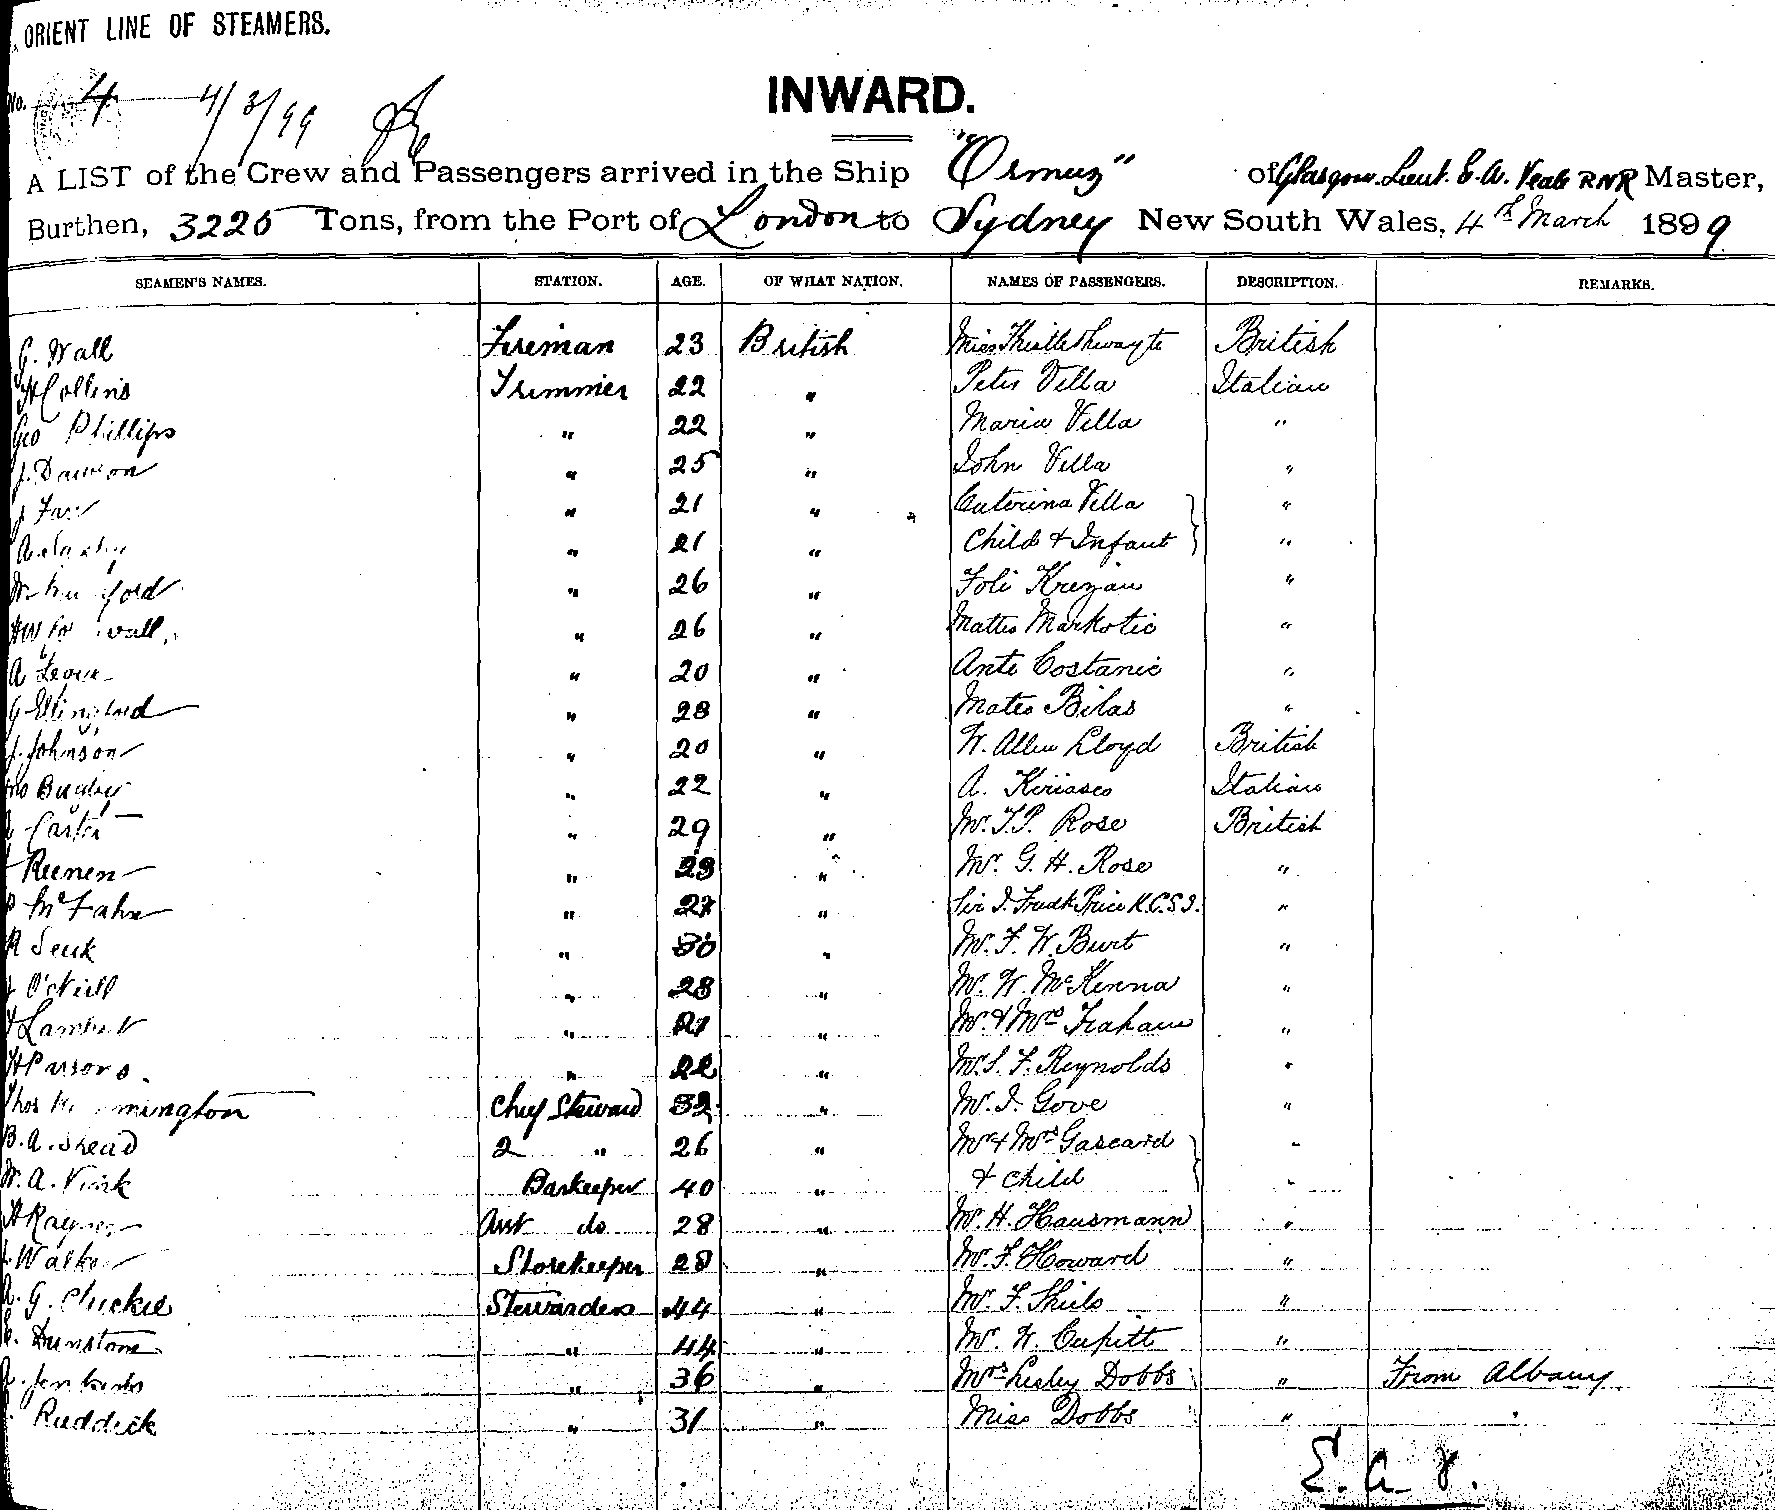 ORIENT LINE OF STEAMERS.
No. 4 4/3/99
INWARD.
A LIST of the Crew and Passengers arrived in the Ship "Ormuz" of Glasgow. Lieut. E. A. Veale RNR Master,
Burthen, 3225 Tons, from the Port of London to Sydney New South Wales, 4th March 1899
SEAMEN'S NAMES. STATION. AGE. OF WHAT NATION. NAMES OF PASSENGERS. DESCRIPTION. REMARKS.
G. Wall Fireman 23 British Miss Thistlethwayte British
H Collins Trimmer 22 " Peter Villa Italian
Geo Phillips " 22 " Maria Villa "
J. Dawson " 25 " John Villa "
J Farr " 21 " Caterina Villa "
" 21 " Child & Infant "
" 26 " Foli Krezan "
" 26 " Matteo Markotic "
A " 20 " Ante Costanic "
G Ellingford " 28 " Mateo Bilas "
J. Johnson " 20 " W. Allen Lloyd British
Bugby " 22 " A. Italian
Carter " 29 " Mr. T.P. Rose British
Reenen " 23 " Mr. G. H. Rose "
" 27 " Sir J. Fredk Price K.C.S.I. "
R " 30 " Mr. F. W. Burt "
O'Neill " 28 " Mr. W. McKenna "
Lambert " 21 " Mr. & Mrs "
H Parsons. " 22 " Mr. S. F. Reynolds "
Thos Chief Steward 32 " Mr. J. Gove "
B. A. Shead 2 " 26 " Mr & Mrs Gascard "
W. A. Barkeeper 40 " & child "
H Rayner Asst do 28 " Mr. H. Hausmann "
Walker Storekeeper 28 " Mr. F. Howard "
A. G. Stewardess 44 " Mr. F. Shiels "
Dunstone " 44 " Mr. W. Cupitt "
Jenkins " 36 " Mrs Lesley Dobbs " From Albany
Ruddick " 31 " Miss Dobbs " "
E. A. V.